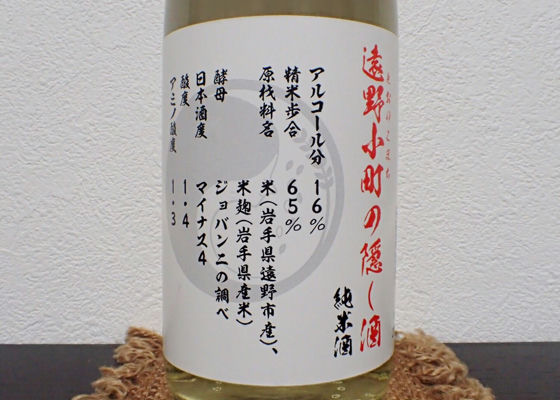 遠野小町の隠し酒
とおのこまち
純米酒
アルコール分 16%
精米歩合 65%
原材料名 米(岩手県遠野市産)、
米麹(岩手県産米)
酵母 ジョバンニの調べ
日本酒度 マイナス4
酸度 1.4
アミノ酸度 1.3